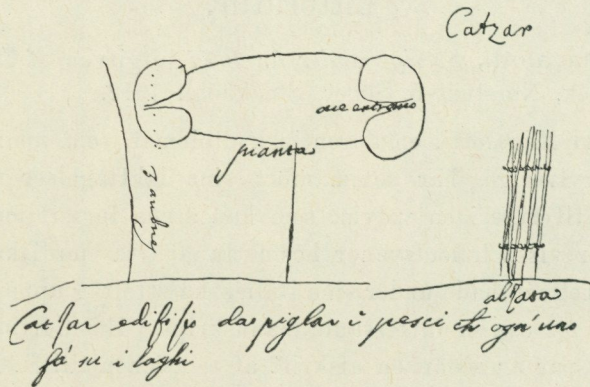 Catzar
oue entrano
pianta
alzata
Catzar edifizio da piglar i pesci ch ogn'uno
fà su i laghi